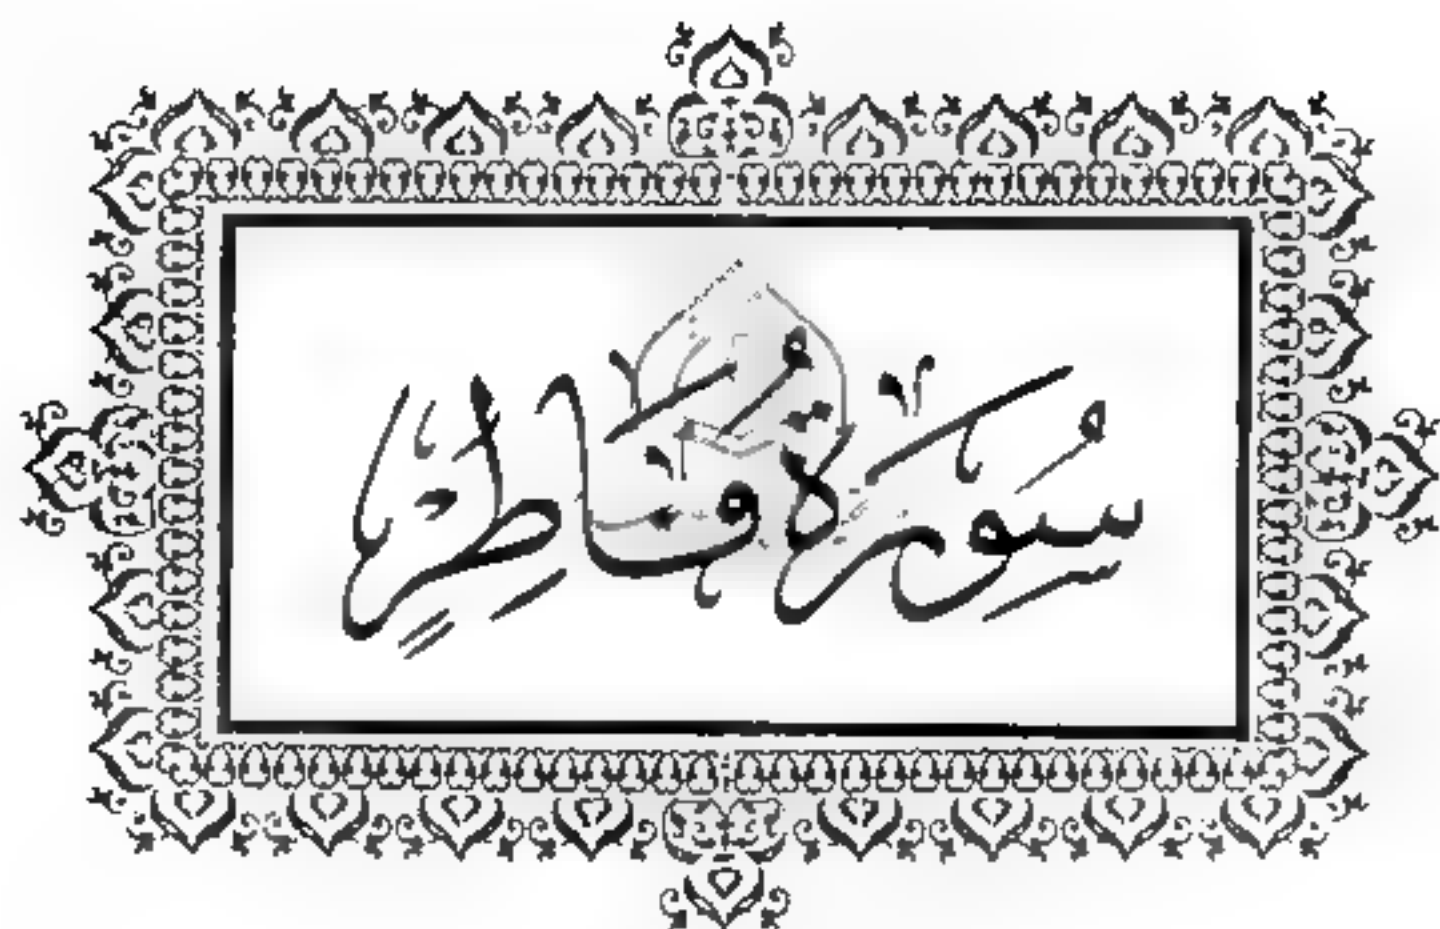 سُورَةُ فَاطِرٍ